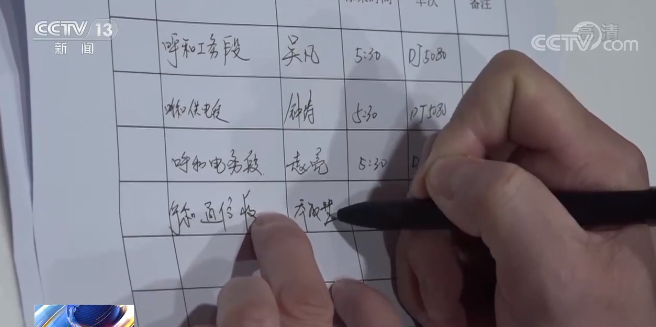 CCTV 13
新闻
高清
CCTV.com
车次 备注
呼和工务段 吴凡 5:30 DJ5080
呼和供电段 5:30 DJ5080
呼和电务段 志亮 5:30 D
呼和通信段